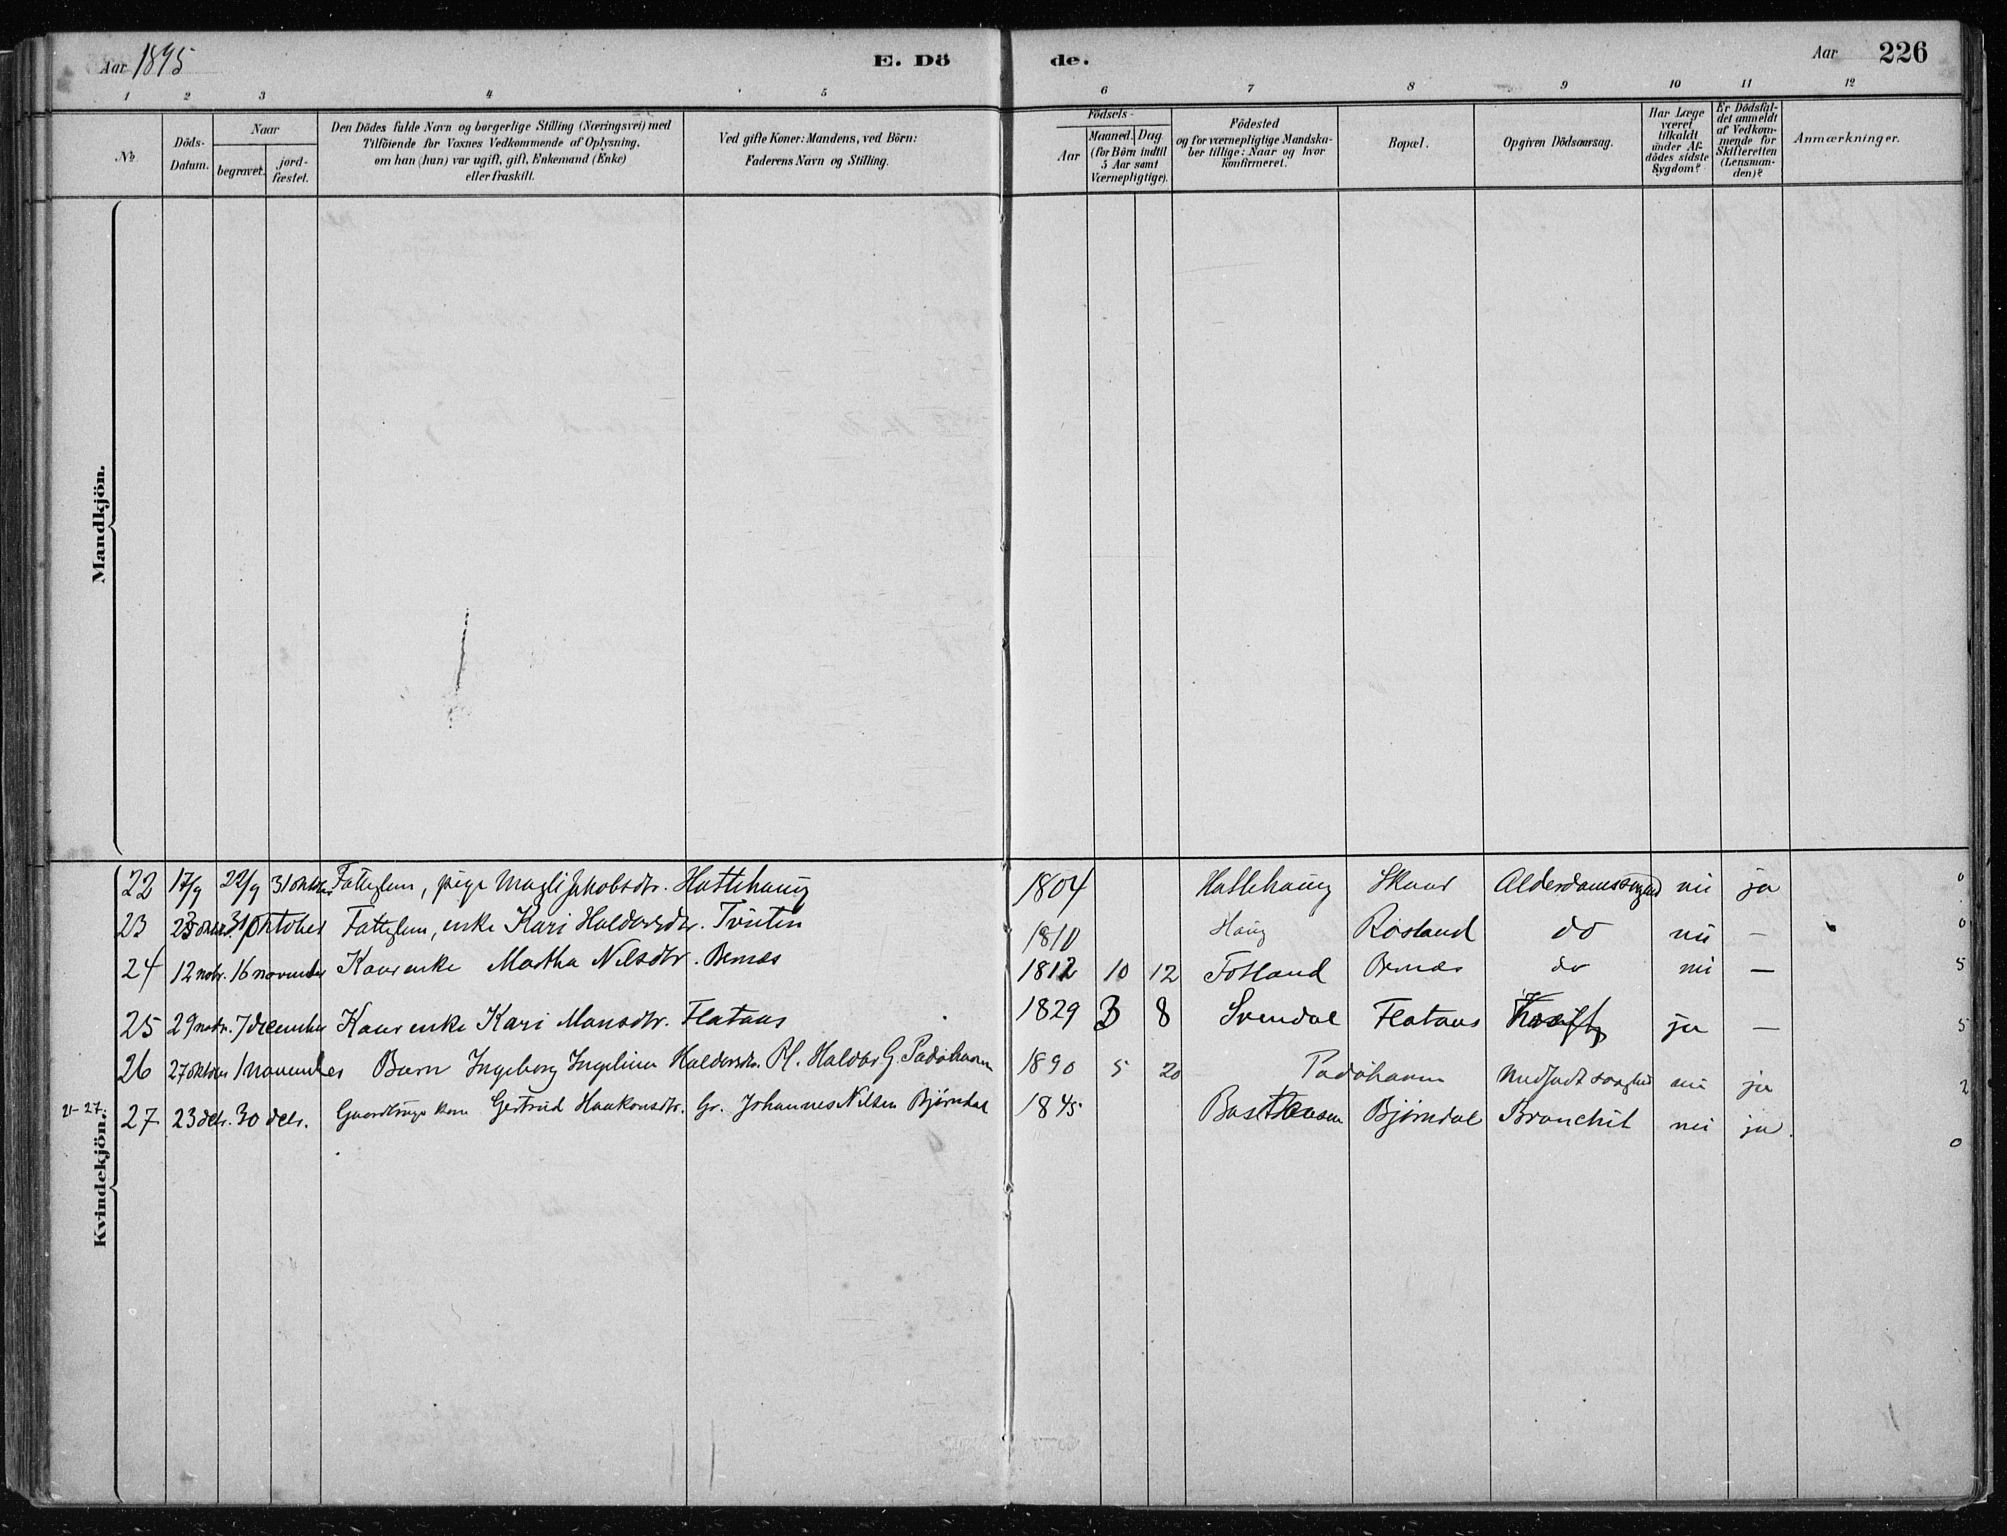 Aar 1895 E. Dö de. Aar 226
1 2 3 4 5 6 7 8 9 10 11 12
No. Döds-Datum. Naar begravet. jord-fæstet. Den Dödes fulde Navn og borgerlige Stilling (Næringsvei) med Tilföiende for Voxnes Vedkommende af Oplysning, om han (hun) var ugift, gift, Enkemand (Enke) eller fraskilt. Ved gifte Koner: Mandens, ved Börn: Faderens Navn og Stilling. Födsels- Aar Maaned. Dag. (for Börn indtil 5 Aar samt Værnepligtige). Födested og for værnepligtige Mandskaber tillige: Naar og hvor konfirmeret. Bopæl. Opgiven Dödsaarsag. Har Læge været tilkaldt under Afdödes sidste Sygdom? Er Dödsfaldet anmeldt af Vedkommende for Skifteretten (Lensmanden)? Anmærkninger.
Mandkjön.
22 17/9 22/9 31 oktober Fattiglem, pige Magli Jakobsdtr. Hattehaug 1804 Hattehaug Skaar Alderdomssvaghed nei ja 0
23 23 okbr. 31 oktober Fattiglem, enke Kari Haldorsdtr. Tveiten 1810 Haug Røsland do nei — 0
24 12 nobr. 16 november Kaarenke Martha Nilsdtr. Bernæs 1812 10 12 Fotland Bernæs do nei — 5
25 29 nobr. 7 december Kaarenke Kari Monsdtr. Flataas 1829 3 8 Svendal Flataas Kræft ja — 5
26 27 oktober 1 november Barn Ingeborg Ingelina Haldorsdtr. Pl. Haldor G. Padøhavn 1890 5 20 Padøhavn Medfødt svaghed nei ja 2
21-27. 27 23 decbr. 30 decbr. Gaardbruger kone Gertrud Haakonsdtr. Gr. Johannes Nilsen Bjørndal 1845 Bjørndal Bronchit nei ja. 0
Kvindekjön.